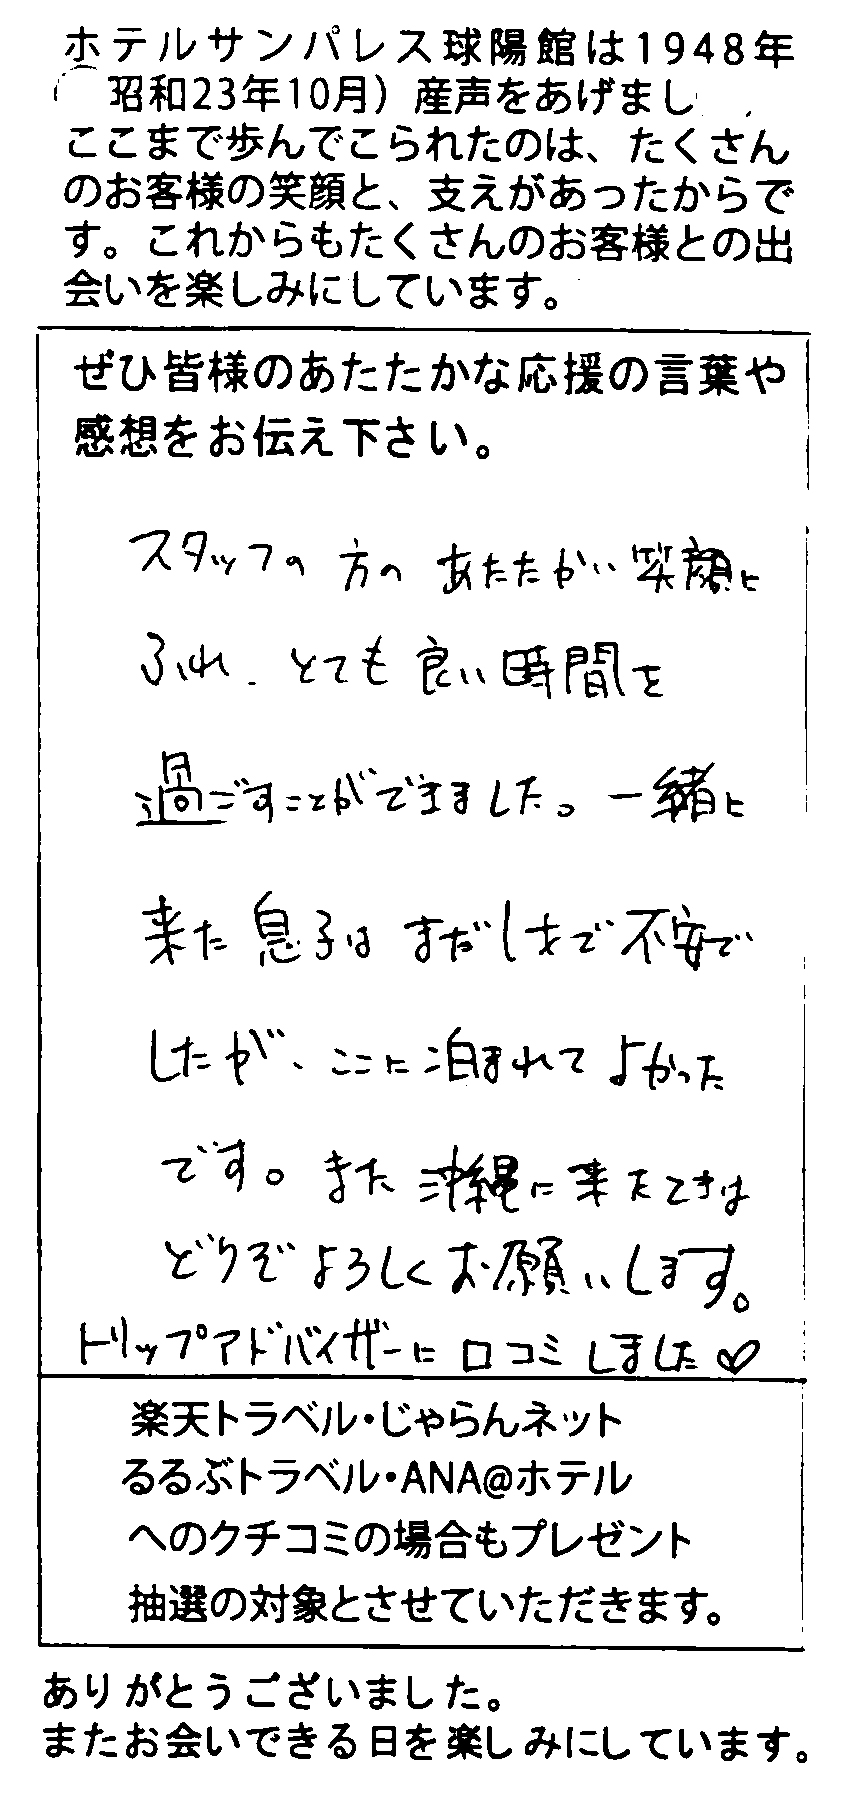 ホテルサンパレス球陽館は1948年
昭和23年10月）産声をあげまし
ここまで歩んでこられたのは、たくさん
のお客様の笑顔と、支えがあったからで
す。これからもたくさんのお客様との出
会いを楽しみにしています。
ぜひ皆様のあたたかな応援の言葉や
感想をお伝え下さい。
スタッフの方のあたたかい笑顔に
ふれ、とても良い時間を
過ごすことができました。一緒に
来た息子はまだ1才で不安で
したが、ここに泊まれてよかった
です。また沖縄に来たときは
どうぞよろしくお願いします。
トリップアドバイザーに口コミしました♡
楽天トラベル・じゃらんネット
るるぶトラベル・ANA@ホテル
へのクチコミの場合もプレゼント
抽選の対象とさせていただきます。
ありがとうございました。
またお会いできる日を楽しみにしています。